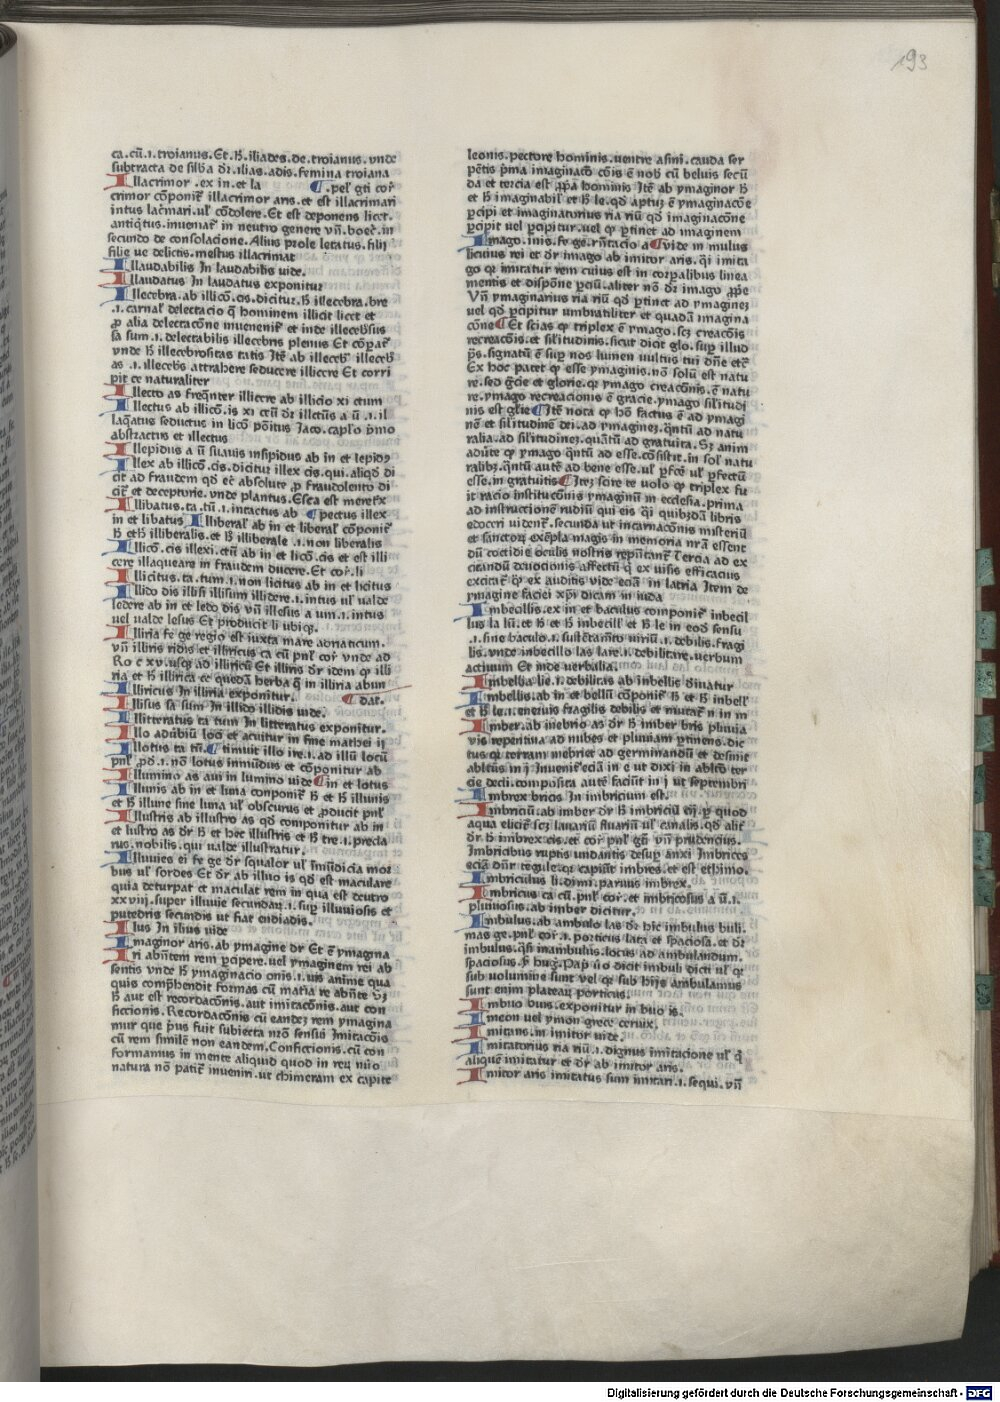 193
ca.cū.i.troianus.Et.ħ.iliades.de.troianus.vnde
subtracta de silba dr̄.ilias.adis.femina troiana
Illacrimor .ex in.et la ¶.pel gti cor̄
crimor cōponit̄ illacrimor aris.et est illacrimari
intus lac̄mari.ul cōdolere.Et est deponens licet.
antiq̄tus.inuenat̄ in neutro genere vn̄.boec̄.in
secundo de consolacione.Alius prole letatus.filij
filie ue delictis.mestus illacrimat
Illaudabilis In laudabilis uide.
Illaudatus In laudatus exponitur
Illecebra.ab illicō.cis.dicitur.ħ illecebra.bre
.i.carnal delectacio q̄ hominem illicit licet et
ꝓ alia delectacōne inuenenit̄ et inde illecebsus
sa sum.i.delectabilis illecebris plenus Et cōparat̄
vnde ħ illecebrositas tatis Itē ab illeceb illeceb
as .i.illecebs attrahere seducere illicere Et corri
pit ce naturaliter
Illecto as freq̄nter illicere ab illicio xi ctum
Illectus ab illicō.is xi ctū dr̄ illectus a ū .i.il
laq̄atus seductus in licō p̄nitus Jaco.caplo p̄mo
abstractus et illectus
Illepidus a ū suauis insipidus ab in et lepidꝰ
Illex ab illicō.cis.dicitur illex cis.qui.aliqd di
cit ad fraudem qd ec̄ absolute ꝓ fraudolento di
cit̄ et deceptorie.vnde plantus.Esca est meretx
Illibatus.ta.tū.i.intactus ab ¶pectus illex
in et libatus Illiberal ab in et liberal cōponit̄
ħ etħ illiberalis.et ħ illiberale .i.non liberalis
Illicō.cis illexi.ctū ab in et licō.cis et est illi
cere illaqueare in fraudem ducere.Et cor̄.li
Illicitus.ta.tum.i.non licitus ab in et licitus
Illido dis illisi illisum illidere.i.intus ul ualde
ledere ab in et ledo dis vn̄ illesus a um.i.intus
uel ualde lesus Et producit li ubiqꝫ.
Illiria fe ge regio est iuxta mare adriaticum.
vn̄ illiris ridis et illiricus ca cū pnl cor̄ vnde ad
Ro c xv.usqꝫ ad illiricū Et illiris dr̄ idem qꝫ illi
ria et ħ illirica ce quedā herba q̄ in illiria abun
Illiricus In illiria exponitur. ¶dat.
Illisus sa sum In illido illidis uide.
Illitteratus ta tum In litteratus exponitur.
Illo adubiū loci et acuitur in fine mathei ij
Illotus ta tū.¶timuit illo ire.i.ad illū locū
pnl ꝓd.i.nō lotus inmūdus et cōponitur ab
Illumino as aui in lumino uide ¶in et lotus
Illunis ab in et luna componit̄ ħ et ħ illunis
et ħ illune sine luna ul obscurus et producit pnl
Illustris ab illustro as qd componitur ab in
et lustro as dr̄ ħ et hec illustris et ħ tre.i.precla
rus.nobilis.qui ualde illustratur.
Illuuies ei fe ge dr̄ squalor ul īmūdicia mor
bus ul sordes Et dr̄ ab illuo is qd est maculare
quia deturpat et maculat rem in qua est deutro
xxviij.super illuuie secundarū.i.suꝑ illuuiosis et
putredris secundis ut fiat endiadis.
Ilus In ilius uide
Imaginor aris.ab ymagine dr̄ Et ē ymagina
ri abn̄tem rem ꝑcipere.uel ymaginem rei ab
sentis vnde ħ ymaginacio onis.i.uis anime qua
quis comp̄hendit formas cū mat̄ia re abn̄te vꝫ
ħ aut est recordacōnis.aut imitacōnis.aut con
ficcionis.Recordacōnis cū eandeꝫ rem ymagina
mur que p̄us fuit subiecta nr̄o sensui Imitacōis
cū rem similē non eandem.Conficcionis.cū con
formamus in mente aliquid quod in reꝝ nūo
natura nō patit̄ inueniri.ut chimeram ex capite
leonis.pectore hominis.uentre asini.cauda ser
pētis p̄ma imaginacō cōis ē nob cū beluis secū
da et tercia est ꝓp̄a hominis Itē ab ymaginor ħ
et ħ imaginabil et ħ le.qd aptuꝫ ē ymaginacōe
ꝑcipi et imaginatorius ria riū qd imaginacōne
ꝑcipit uel ꝑcipitur.uel qꝫ ꝑtinet ad imaginem
Imago.inis.fe ge.rn̄tacio a¶vide in mulus
licuius rei et dr̄ imago ab imitor aris.qi imita
go qꝛ imitatur rem cuius est in corꝑalibus linea
mentis et dispōne ꝑciū.aliter nō dr̄ imago ꝓp̄e
Vn̄ ymaginarius ria riū qd ꝑtinet ad ymagineꝫ
uel qd ꝑcipitur umbratiliter et quadā imagina
cōne¶Et scias qꝫ triplex ē ymago.scꝫ creacōis
recreacōis.et silitudinis.sicut dicit glo.suꝑ illud
p̄s.signatū ē suꝑ nos lumen uultus tui dn̄e etc̄
Ex hoc patet qꝫ esse ymaginis.nō solū est natu
re.sed gr̄cie et glorie.qꝛ ymago creacōnis.ē natu
re.ymago recreacionis ē gracie.ymago silitudi
nis est glie¶Itē nota qꝫ hō factus ē ad ymagi
nē et silitudinē dei.ad ymagineꝫ.q̄ntū ad natu
ralia.ad silitudineꝫ.quātū ad gratuita.Sꝫ anim
adute qꝫ ymago q̄ntū ad esse.cōsistit.in sol natu
ralibꝫ.q̄ntū autē ad bene esse.ul ꝑfcē ul ꝑfectū
esse.in gratuitis¶Iteꝫ scire te uolo qꝫ triplex fu
it racio institucōnis ymaginū in ecclesia.prima
ad instructionē rudiū qui eis q̄i quibꝫdā libris
edoceri uident̄.secunda ut incarnacōnis misteriū
et sanctoꝝ exēpla magis in memoria nr̄a essent
dū cotidie oculis nostris rep̄ntant̄ Tercia ad ex
citandū deuocionis affectū qꝛ ex uisis efficacius
excitat̄ qꝫ ex auditis vide eciā in latria Item de
ymagine faciei xp̄i dicam in iuda
Imbecillis.ex in et baculus componit̄ inbecil
lus la lū.et ħ et ħ inbecill et ħ le in eod sensu
.i.sine baculo.i.sustētam̄to uiriū.i.debilis.fragi
lis.vnde inbecillo las lare.i.debilitare.uerbum
actiuum Et inde uerbalia.
Imbellia lie.i.debilitas ab inbellis diuatur
Imbellis.ab in et bellū cōponit̄ ħ et ħ inbell
et ħ le.i.eneruis fragilis debilis et mutat̄ n in m
Imber.ab inebrio as dr̄ ħ imber bris pluuia
vis repentina ad nubes et pluuiam ꝑtinens.dic
tus qꝛ terram inebriet ad germinandū et desinit
abltūs in j Inuenit̄ eciā in e ut dixi in abltō ter
cie decli.composita autē faciūt in j ut septembri
Imbrex bricis In imbricium est.
Imbriciū.ab imber dr̄ ħ imbriciū cij.ꝑ quod
aqua elicit̄ scꝫ lauariū fluariū ul canalis.qd alit̄
dr̄ ħ imbrex cis.et cor̄ pnl gū vn̄ prudencius.
Imbricibus ruptis undantis desuꝑ anxi Imbrices
eciā dn̄r tegule.qꝛ capiūt imbres.et est ethimo.
Imbriculus li.dimi.paruus imbrex.
Imbricus ca cū.pnl cor̄.et imbricosus a ū.i.
pluuiosus.ab imber dicitur.
Imbulus.ab ambulo las dr̄ hic imbulus buli.
mas ge.pnl cor̄.i.porticus lata et spaciosa.et dr̄
imbulus.q̄si inambulus.locus ad ambulandum.
spaciosus.ꝑ hug.Pap̄ ūo dicit imbuli dicti ul qꝛ
sub uolumine sunt vel qꝛ sub hijs ambulamus
sunt enim plateaꝝ porticus.
Imbuo buis.exponitur in buo is.
Imeon uel ymon grece ceruix.
Imitans.in imitor uide.
Imitatorius ria riū.i.dignus imitacione ul q̄
aliquē imitatur et dr̄ ab imitor aris.
Imitor aris imitatus sum imitari.i.sequi.vn̄
Digitalisierung gefördert durch die Deutsche Forschungsgemeinschaft - DFG